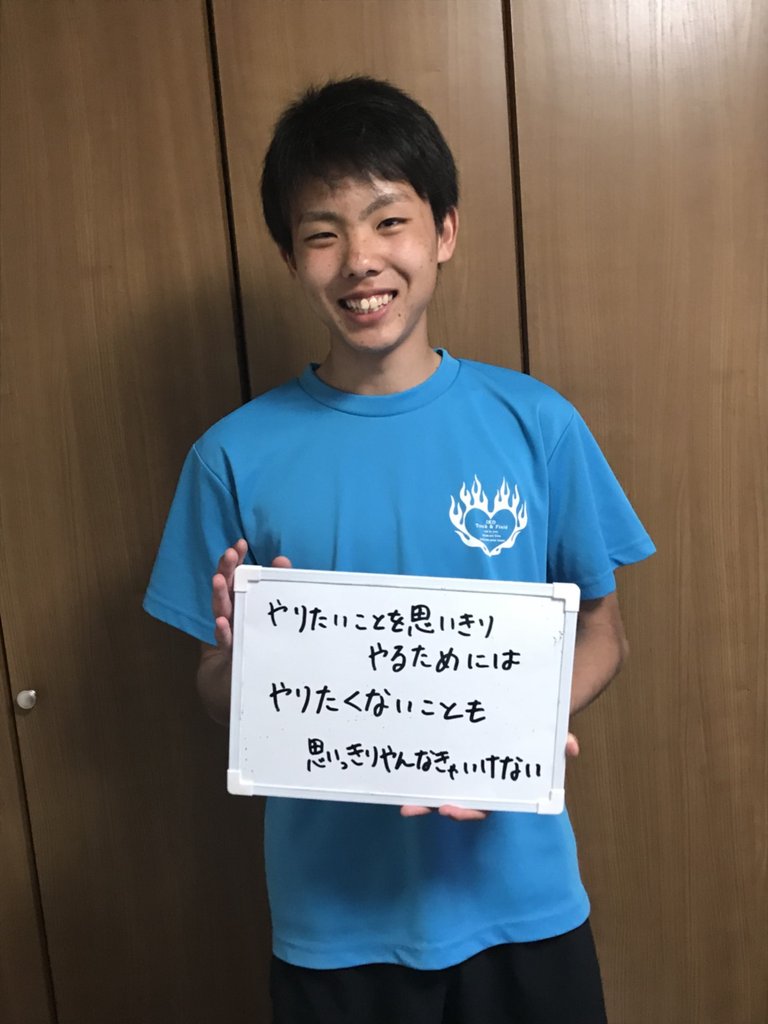 Track & Field
やりたいことを思いきり
やるためには
やりたくないことも
思いっきりやんなきゃいけない